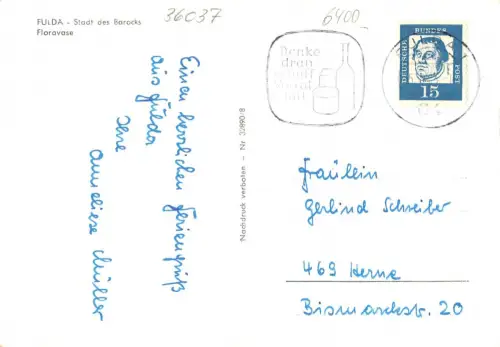 36037
6400
FULDA - Stadt des Barocks
Floravase
Einen herzlichen Feriengruß
aus Fulda
Ihre
Anneliese Müller
Nachdruck verboten – Nr. 3089018
Denke
dran
DEUTSCHE BUNDESPOST
15
Fräulein
Gerlind Schreiber
469 Herne
Bismarckstr. 20